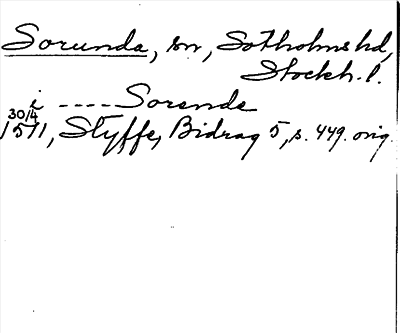 Sorunda, sn, Sotholms hd,
Stockh. l.
i ---- Sorende
30/4
1511, Styffe, Bidrag 5, s. 449. orig.